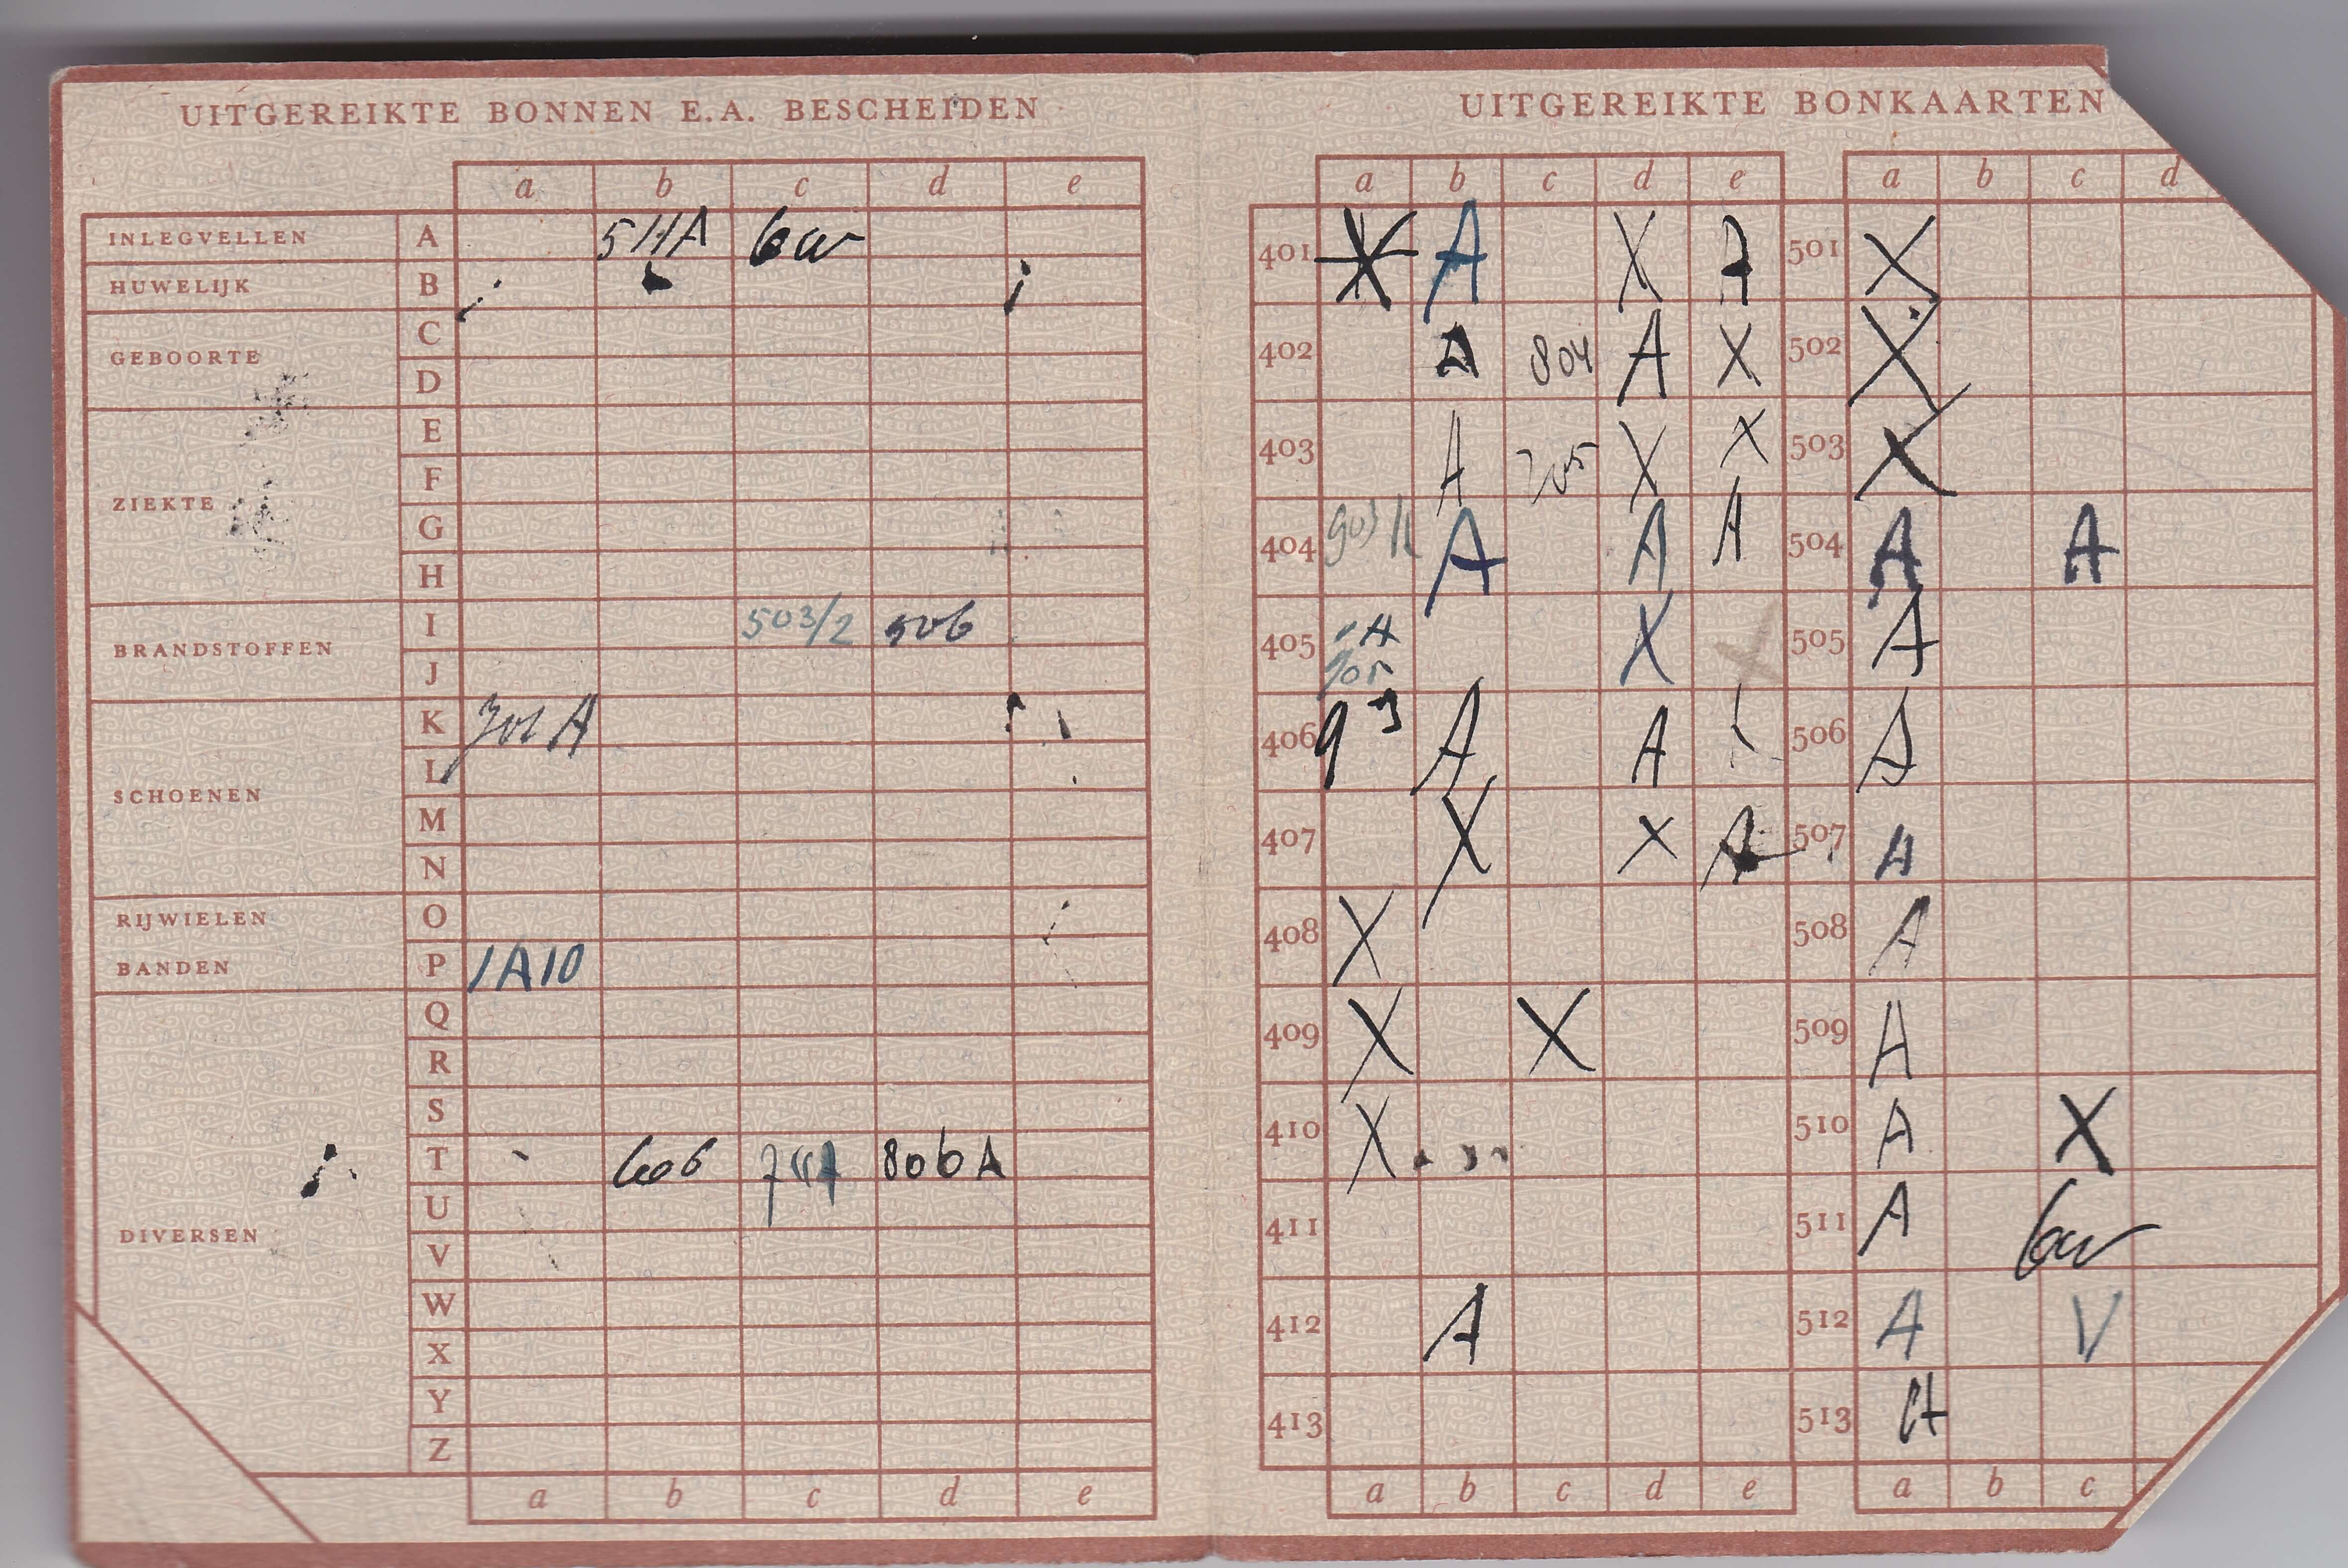 UITGEREIKTE BONNEN E.A. BESCHEIDEN
a b c d e
INLEGVELLEN A 511A
HUWELIJK B
GEBOORTE C
D
E
F
ZIEKTE G
H
I 503/2 506
BRANDSTOFFEN J
K A
L
SCHOENEN M
N
RIJWIELEN O
BANDEN P 1A10
Q
R
S
T 606 806A
U
DIVERSEN V
W
X
Y
Z
a b c d e
UITGEREIKTE BONKAARTEN
a b c d e a b c d
401 X A X A 501 X
402 A 804 A X 502 X
403 A X X 503 X
404 A A A 504 A A
405 A X X 505 A
406 A A 506 A
407 X X A 507 A
408 X 508 A
409 X X 509 A
410 X 510 A X
411 511 A
412 A 512 A V
413 513 A
a b c d e a b c